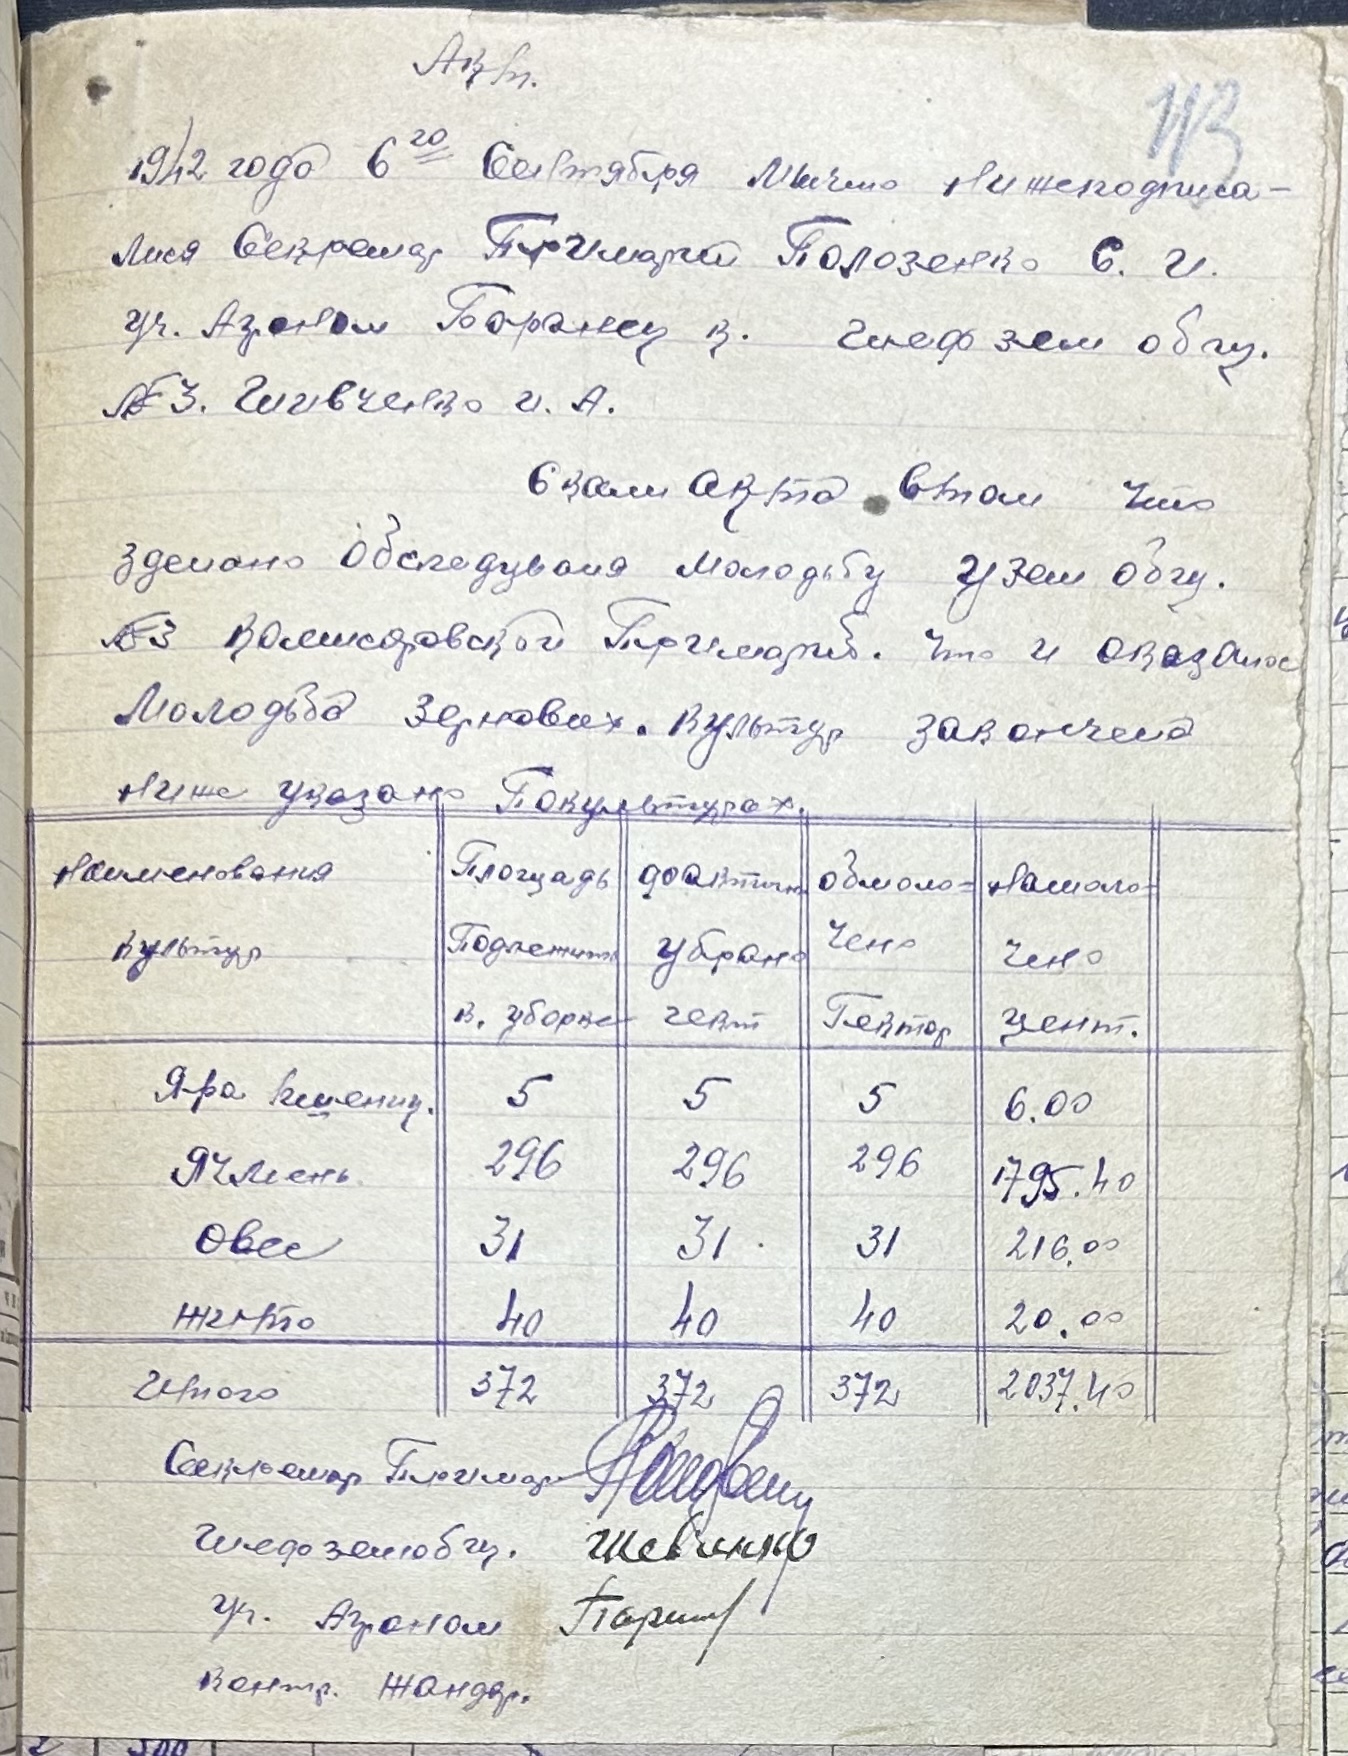 Акт.
113
1942 года 6го Сентября Мычто нижеподписа-
лися Секретар Примарии Полозенко С. И.
уч. Агроном Боранец К. Шеф зем общ.
№3. Шивченко И. А.
Склали акта втом что
зделано Обследуваня молодьбу узем общ.
№3 Комисаровской Примарий. что и оказалос
Молодьба зерновых. Культур закончена
ниже указано Покультурах.
Наименования Культур | Площадь Подлежит к. уборке | фактичн убрано гект | обмоло=чено Гектар | намоло=чено цент.
Яра Пшениц. 5 5 5 6.00
Ячмень 296 296 296 1795.40
Овес 31 31 31 216.00
жито 40 40 40 20.00
Итого 372 372 372 2037.40
Секретар Примар
Шефземобщ. Шевченко
уч. Агроном
контр. Жандар.
2 300